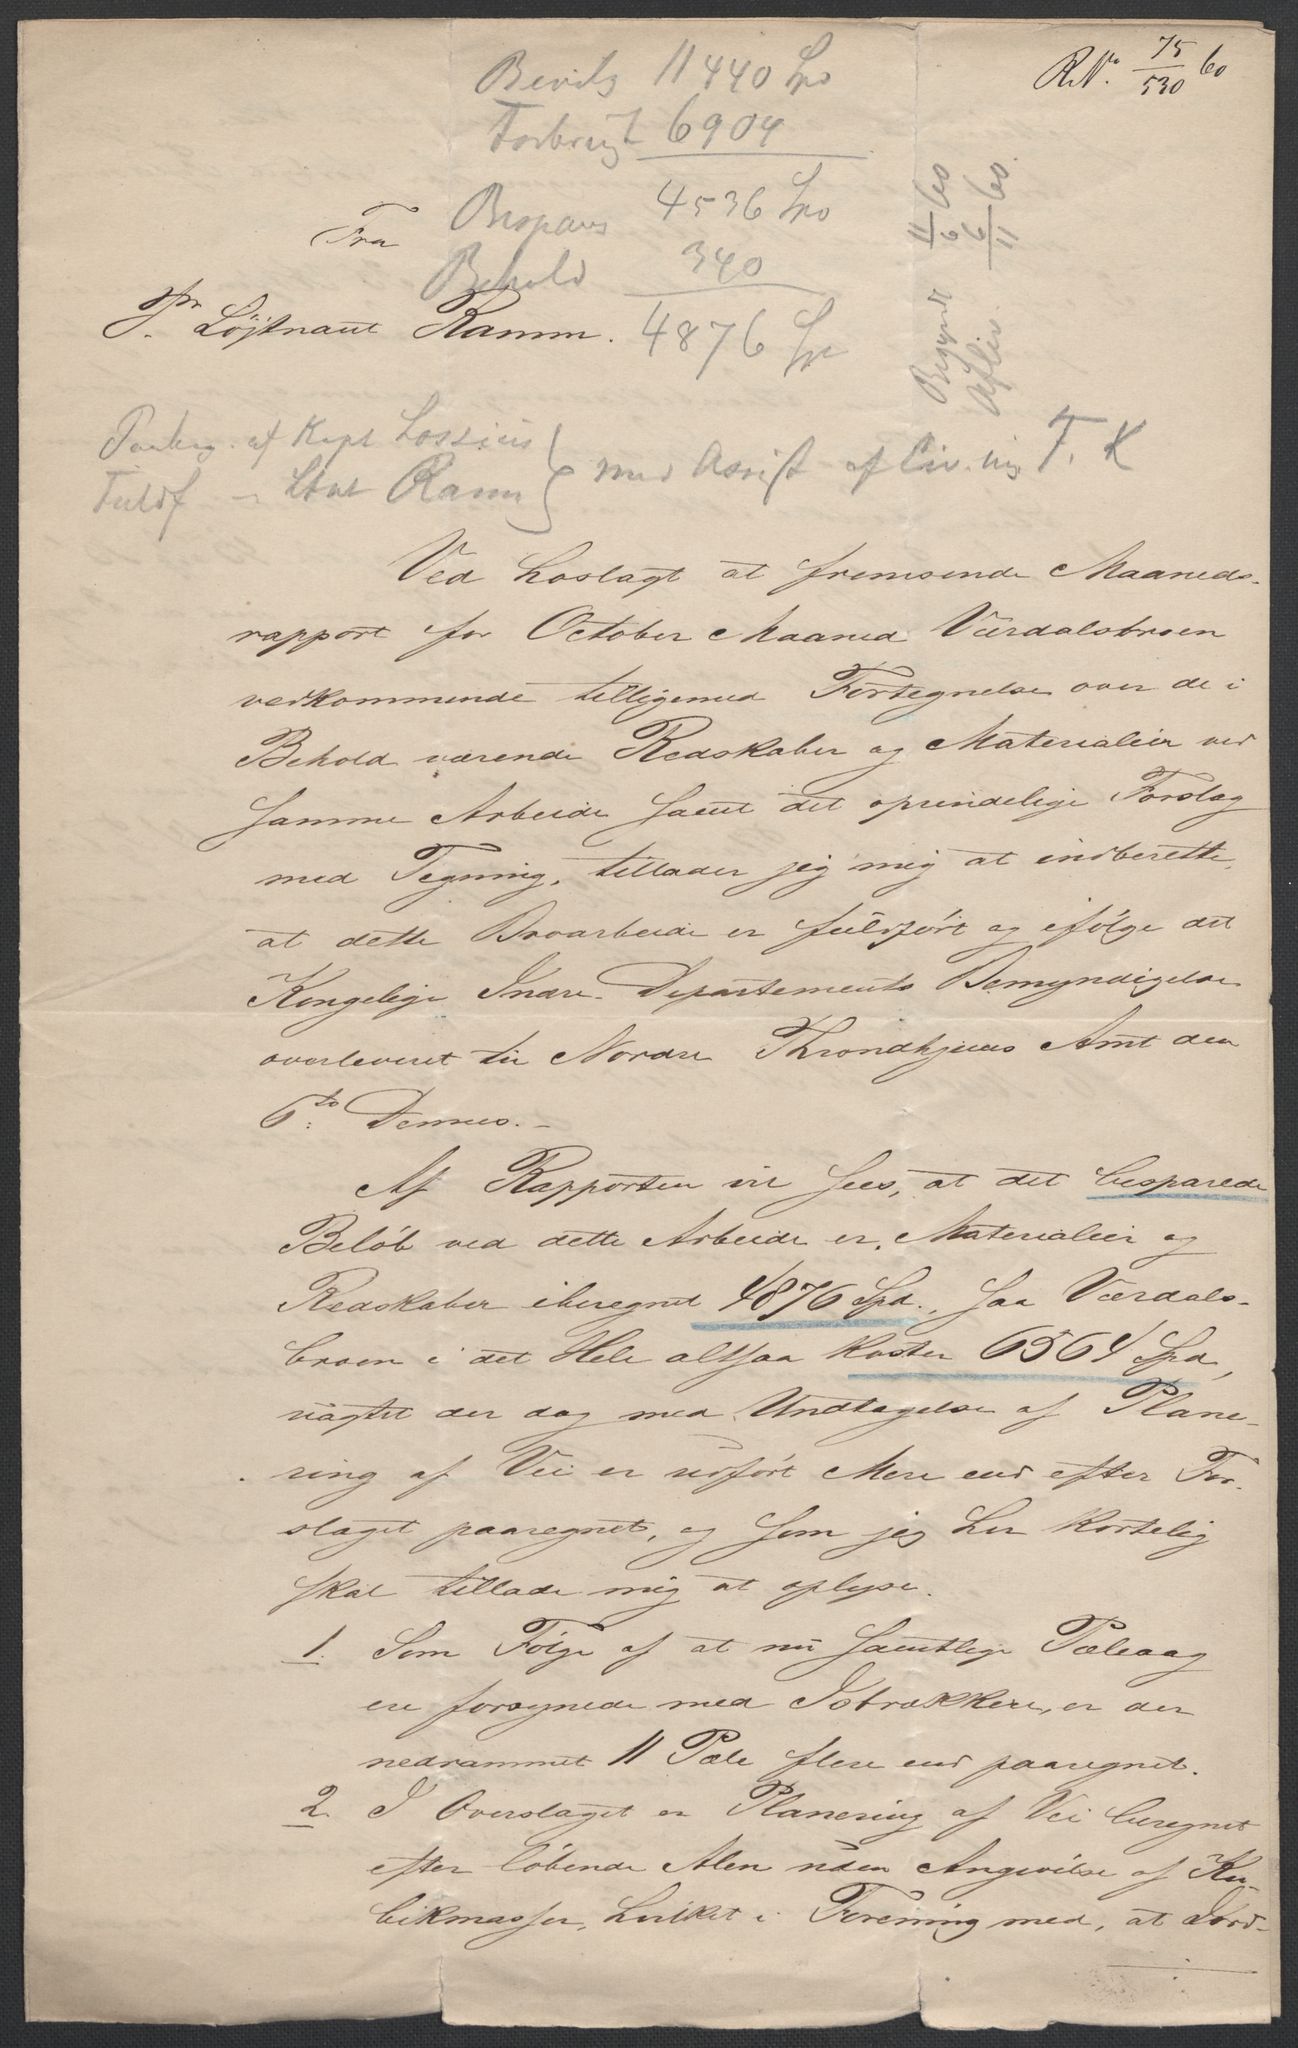 R.N. 75/530 60
Bevilg 11440 Spd
Forbrugt 6904
Bespares 4536 Spd
Behold 340
4876 Spd
Begyndt 11/6 60
Aflev. 6/11 60.
Fra
Pr Löjtnant Ramm.
af Kapt Lossius
Fuldf – Ltnt Ramm
med Assist af Civ. ing T. K
Ved hoslagt at fremsende Maaneds-
rapport for October Maaned Værdalsbroen
vedkommende tilligemed Fortegnelse over de i
Behold værende Redskaber og Materialier ved
samme Arbeide samt det oprindelige Forslag
med Tegning, tillader jeg mig at indberette,
at dette Broarbeide er fuldfört og ifölge det
Kongelige Indre-Departements Bemyndigelse
overleveret til Nordre Throndhjems Amt den
6te Dennes.–
Af Rapporten vil sees, at det besparede
Belöb ved dette Arbeide er, Materialier og
Redskaber iberegnet 4876 Spd., saa Værdals-
broen i det Hele altsaa koster 6564 Spd,
uagtet der dog med Undtagelse af Plane-
ring af Vei er udfört Mere end efter For-
slaget paaregnet, og som jeg her kortelig
skal tillade mig at oplyse.
1. Som Fölge af at nu samtlige Pæleaag
ere forsynede med Isbrækkere, er der
nedrammet 11 Pæle flere end paaregnet.
2. I Overslaget er Planering af Vei beregnet
efter löbende Alen uden Angivelse af Ku-
bikmasser, hvilket i Forening med, at Jord-